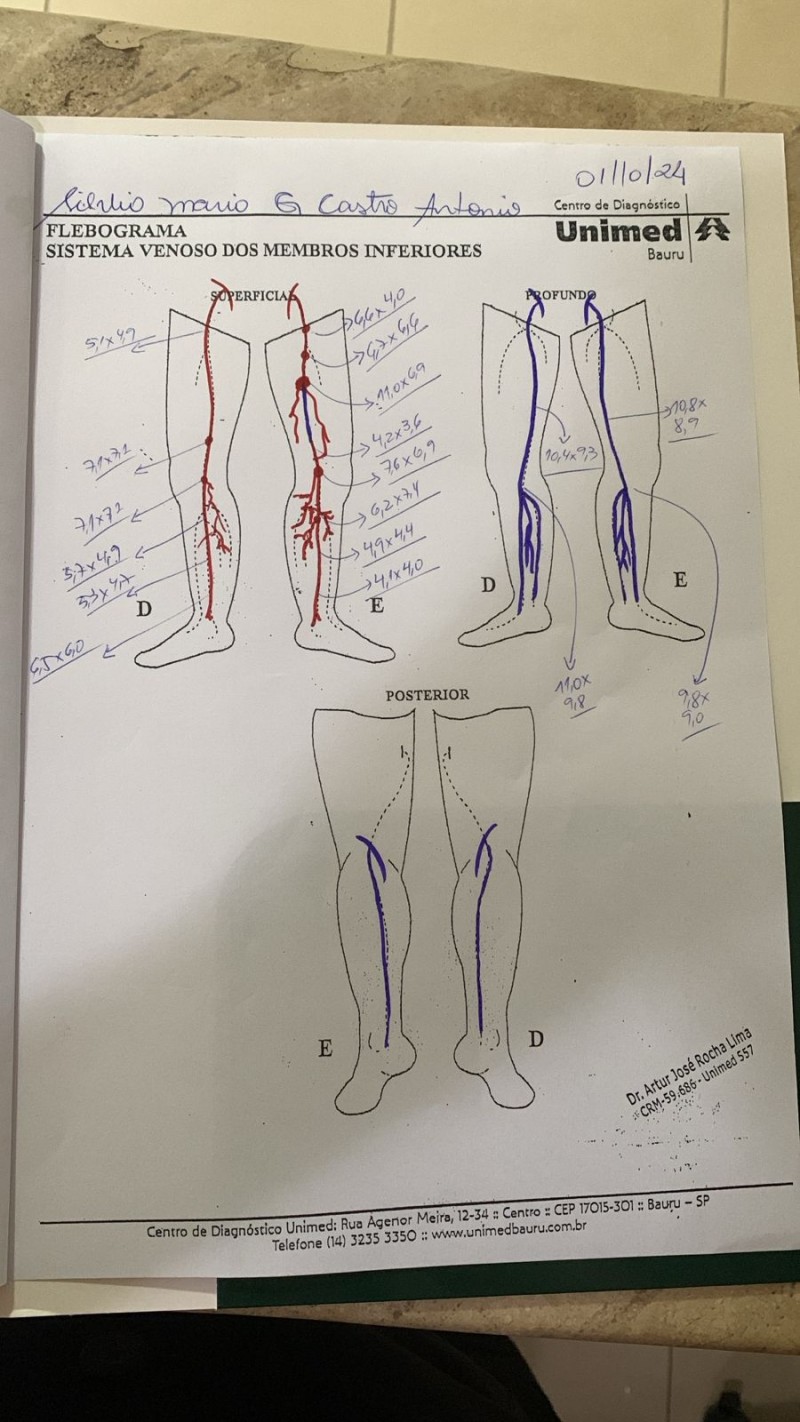 01/10/24
mario G Castro Antonio
Centro de Diagnóstico
Unimed
Bauru
FLEBOGRAMA
SISTEMA VENOSO DOS MEMBROS INFERIORES
SUPERFICIAL
PROFUNDO
5,1x4,9
7,1x7,1
7,1x7,2
5,7x4,9
5,3x4,7
6,5x6,0
D
6,6x4,0
6,7x6,6
11,0x6,9
4,2x3,6
7,6x6,9
6,2x7,4
4,9x4,4
4,1x4,0
E
10,4x9,3
10,8x
8,9
D
E
11,0x
9,8
9,8x
9,0
POSTERIOR
E
D
Dr. Artur José Rocha Lima
CRM-59.686 - Unimed 557
Centro de Diagnóstico Unimed: Rua Agenor Meira, 12-34 :: Centro :: CEP 17015-301 :: Bauru – SP
Telefone (14) 3235 3350 :: www.unimedbauru.com.br